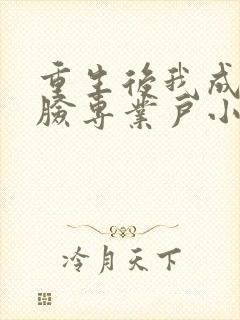 重生後我成
臉專業戶小
冷月天下